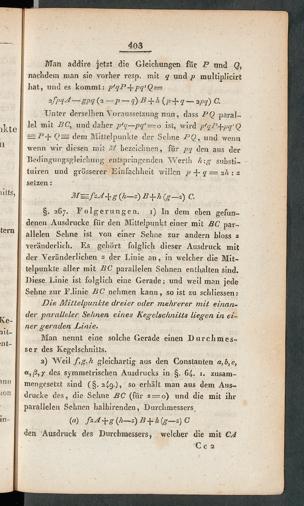 403
Man addire jetzt die Gleichungen für P und Q,
nachdem man sie vorher resp. mit q und p multiplicirt
hat, und es kommt: p'qP+pq'Q≡
2fpqA—gpq (2—p—q) B+h (p+q—2pq) C.
Unter derselben Voraussetzung nun, dass PQ paral-
lel mit BC, und daher p'q—pq'=0 ist, wird p'qP+pq'Q
≡P+Q≡ dem Mittelpunkte der Sehne PQ, und wenn
wenn wir diesen mit M bezeichnen, für pq den aus der
Bedingungsgleichung entspringenden Werth h:g substi-
tuiren und grösserer Einfachheit willen p+q=2h:z
setzen:
M≡fzA+g (h—z) B+h (g—z) C.
§. 267. Folgerungen. 1) In dem eben gefun-
denen Ausdrucke für den Mittelpunkt einer mit BC par-
allelen Sehne ist von einer Sehne zur andern bloss z
veränderlich. Es gehört folglich dieser Ausdruck mit
der Veränderlichen z der Linie an, in welcher die Mit-
telpunkte aller mit BC parallelen Sehnen enthalten sind.
Diese Linie ist folglich eine Gerade; und weil man jede
Sehne zur F.linie BC nehmen kann, so ist zu schliessen:
Die Mittelpunkte dreier oder mehrerer mit einan-
der paralleler Sehnen eines Kegelschnitts liegen in ei-
ner geraden Linie.
Man nennt eine solche Gerade einen Durchmes-
ser des Kegelschnitts.
2) Weil f,g,h gleichartig aus den Constanten a,b,c,
α,β,γ des symmetrischen Ausdrucks in §. 64. 1. zusam-
mengesetzt sind (§. 249.), so erhält man aus dem Aus-
drucke des, die Sehne BC (für z=0) und die mit ihr
parallelen Sehnen halbirenden, Durchmessers
(a) fzA+g (h—z) B+h (g—z) C
den Ausdruck des Durchmessers, welcher die mit CA
C c 2